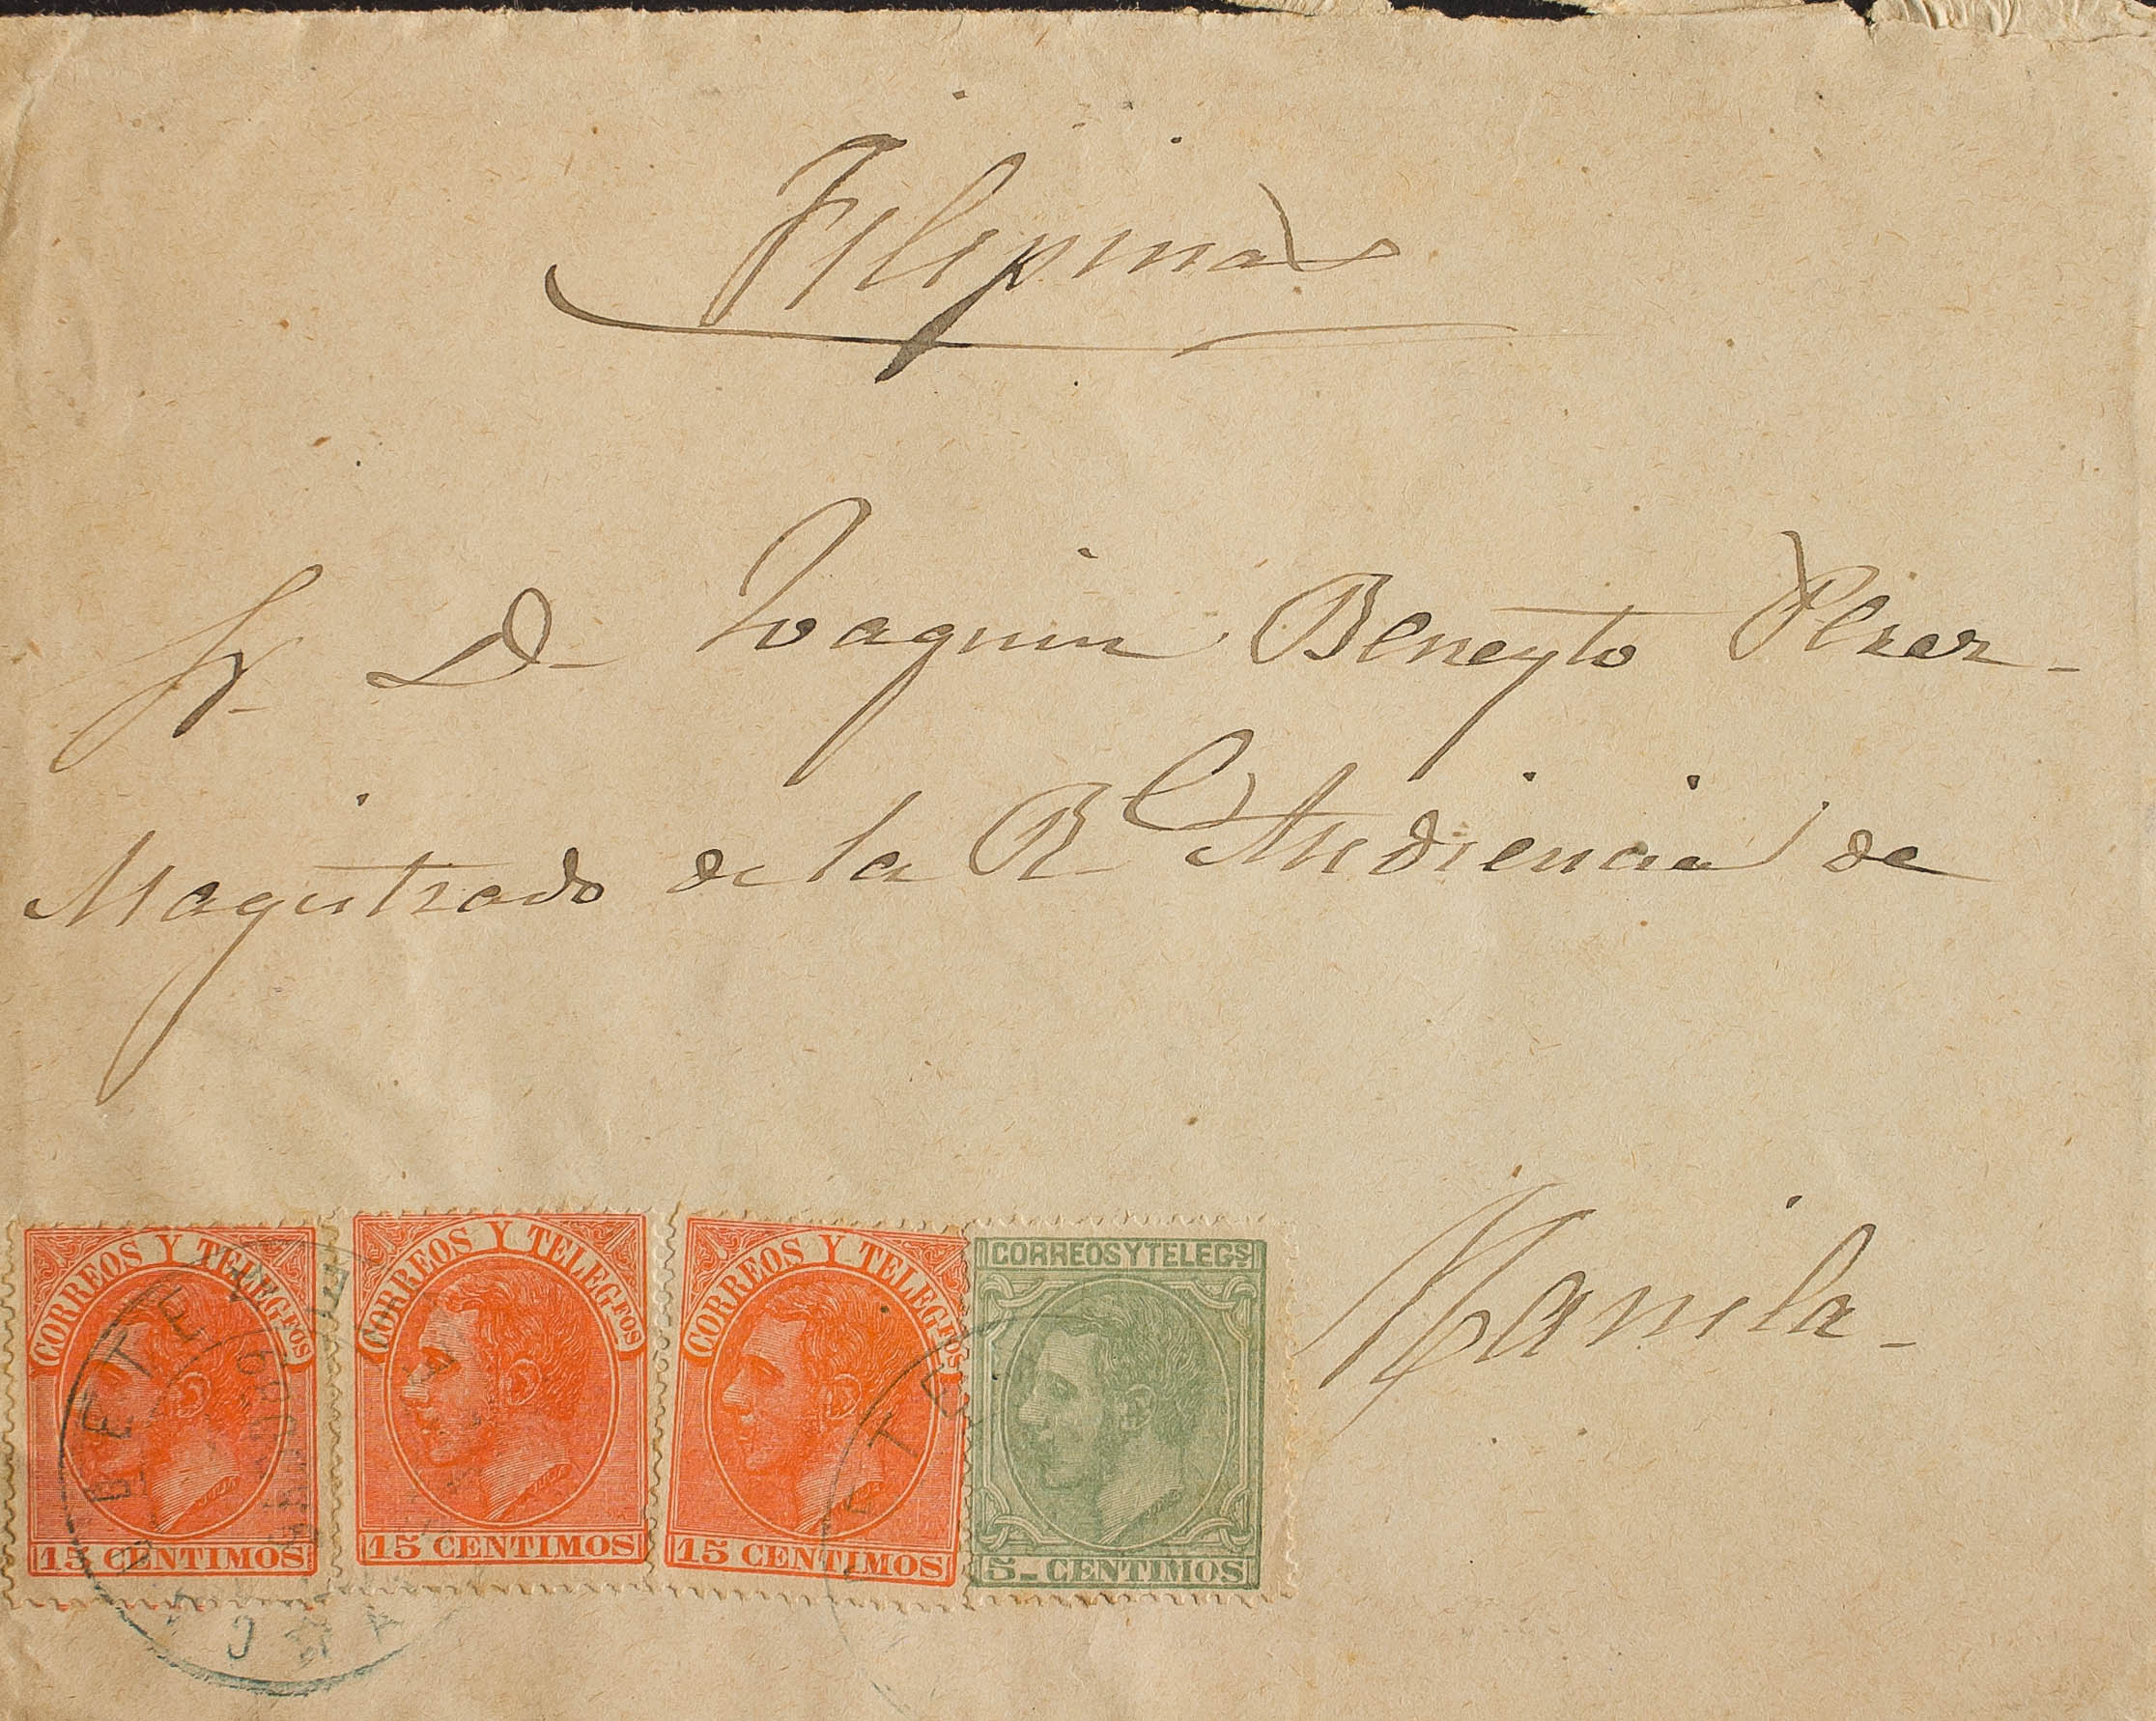 Filipinas
Sr. D. Joaquin Beneyto Perez-
Magistrado de la R. Audiencia de
Manila-
CORREOS Y TELEGFOS
15 CENTIMOS
CORREOS Y TELEGFOS
15 CENTIMOS
CORREOS Y TELEGFOS
15 CENTIMOS
CORREOS Y TELEGS
5- CENTIMOS